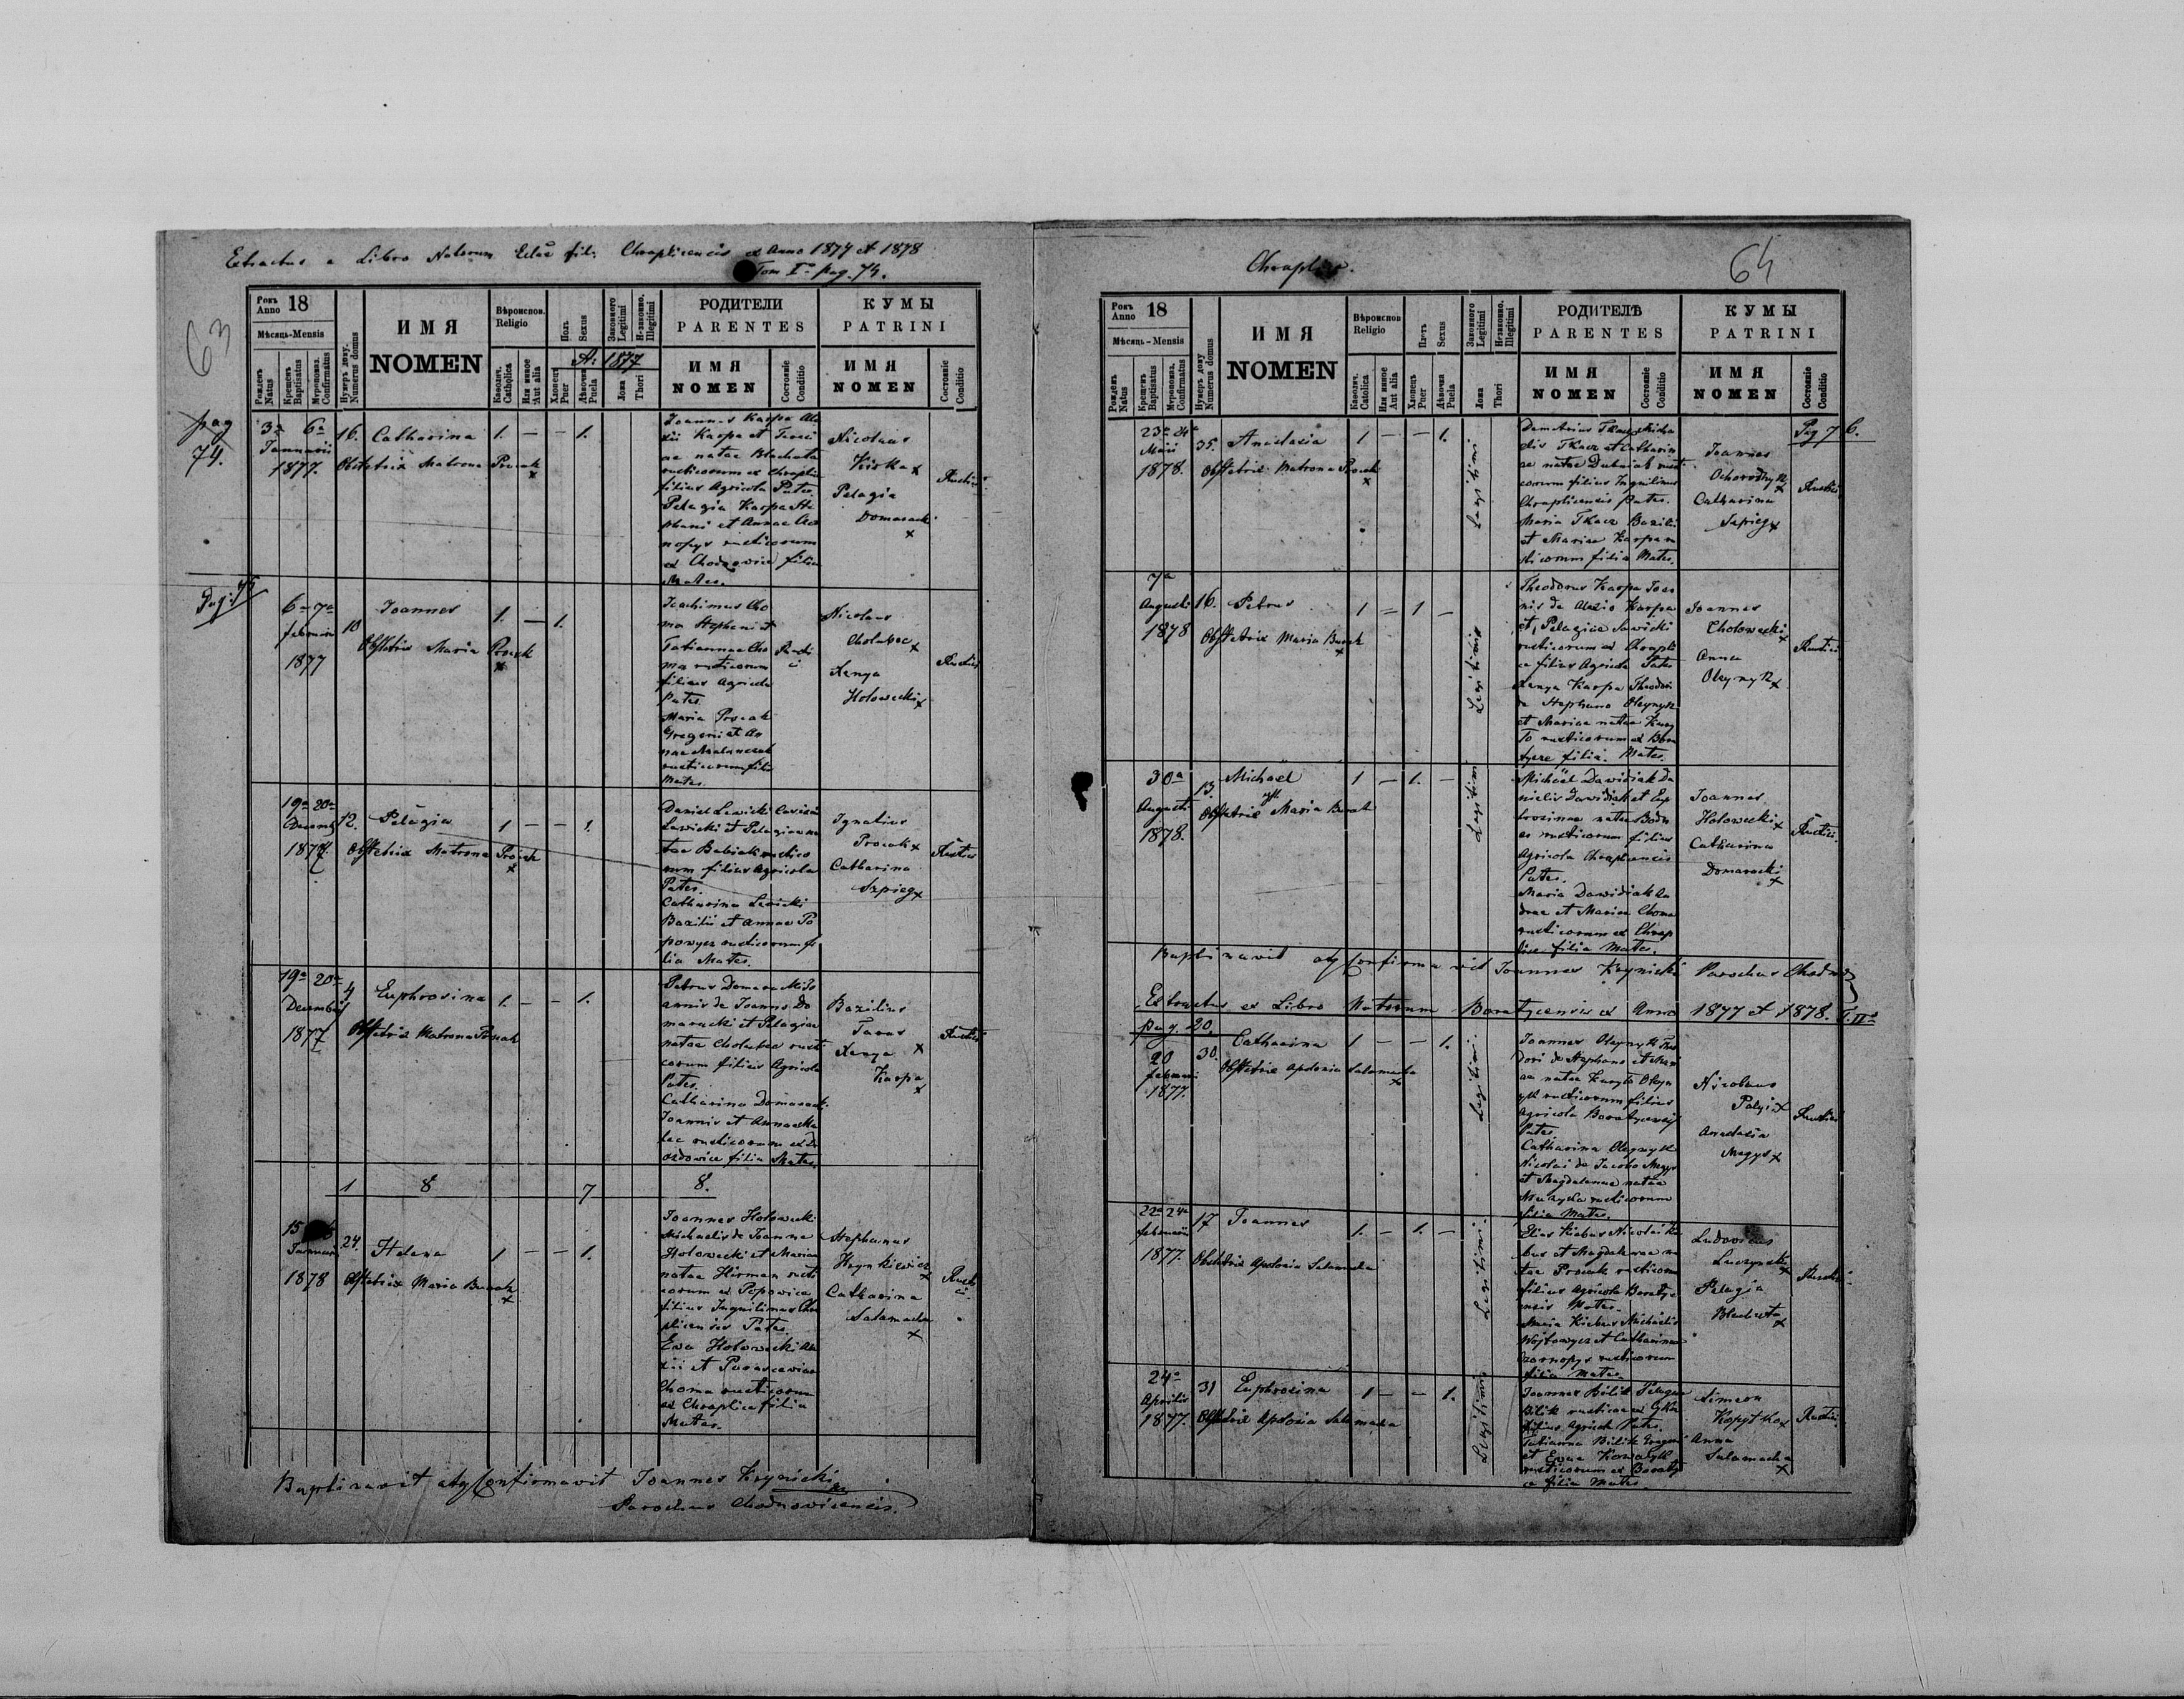 Extractus e Libro Natorum Eclae fil. Chraplicensis ex Anno 1877 et 1878
Tom I° pag. 74.
63
Рокъ
Anno 18
Мѣсяць-Mensis
Рожденъ
Natus
Крещенъ
Baptisatus
Мѵропомаз.
Confirmatus
Нумеръ дому.
Numerus domus
ИМЯ
NOMEN
Вѣроиспов.
Religio
Католич.
Catholica
Или иное
Aut alia
Полъ
Sexus
A: 1877
Хлопецъ
Puer
Дѣвочка
Puela
Законного
Legitimi
Незаконно.
Illegitimi
Ложа
Thori
РОДИТЕЛИ
PARENTES
ИМЯ
NOMEN
Состояніе
Conditio
КУМЫ
PATRINI
ИМЯ
NOMEN
Состояніе
Conditio
pag
74.
3a 6a
Januarii
1877.
16. Catharina 1. — — 1.
Obstetrix Matrona Procak
x
Joannes Karpa Ale
xii Karpa et
nae natae Blachuta
rusticorum ex Chraplice
filius Agricola Pater.
Pelagia Karpa Ste
phani et Annae Czor
nopys rusticorum
ex Chodnowice filia
Mater.
Nicolaus
x
Pelagia
Domaracki
x
Rustici
Pag: 75
6a 7a
februarii
1877
10
Joannes 1. — 1.
Obstetrix Maria Procak
x
Joachimus Cho
ma Stephani et
Tatiannae Cho
ma rusticorum
filius Agricola
Pater.
Maria Procak
Gregorii et An
nae
rusticorum filia
Mater.
Rusti
ci
Nicolaus
Cholubec
x
Xenya
Holowecki x
Rustici
19a 20a
Decembr
1877
12. Pelagia 1 — — 1.
Obstetrix Matrona Procak
x
Daniel Lewicki
Lewicki et Pelagiae na
tae Babiak rustico
rum filius Agricola
Pater.
Catharina Lewicki
Bazilii et Annae Po
powycz rusticorum fi
lia Mater.
Ignatius
Procak x
Catharina
Szpieg x
Rustici
19a 20a
Decembris
1877
4
Euphrosina 1. — — 1.
Obstetrix Matrona Procak
Petrus Domaracki Jo
annis de Joanne Do
maracki et Pelagiae
natae Cholubec rusti
corum filius Agricola
Pater.
Catharina Domaracki
Joannis et Annae
rusticorum ex
filia Mater.
Bazilius
Taras
x
Xenya
Karpa
x
Rustici
1 8 7 8.
15
Januarii
1878
24. Helena 1 — — 1.
Obstetrix Maria Burak
x
Joannes Holowecki
Michaelis de Joanne
Holowecki et Mariae
natae Hirman rusti
corum ex Popowice
filius Inquilinus Chra
plicensis Pater.
Eva Holowecki Ale
xii et Parascewiae
Choma rusticorum
ex Chraplice filia
Mater.
Stephanus
Hrynkiewicz
x
Catharina
Salamacha
x
Rusti
ci
Baptizavit atq Confirmavit Joannes Krynicki
Parochus Chodnovicensis.
Chraplice.
64
Рокъ
Anno 18
Мѣсяць - Mensis
Рожденъ
Natus
Крещенъ
Baptisatus
Мѵропомаз.
Confirmatus
Нумеръ дому
Numerus domus
ИМЯ
NOMEN
Вѣроиспов.
Religio
Католич.
Catolica
Или иное
Aut alia
Плоть
Sexus
Хлопецъ
Puer
Дѣвочка
Puela
Законного
Legitimi
Незаконно.
Illegitimi
Ложа
Thori
РОДИТЕЛѢ
PARENTES
ИМЯ
NOMEN
Состояніе
Conditio
КУМЫ
PATRINI
ИМЯ
NOMEN
Состояніе
Conditio
Pag 76.
23a 24a
Maii
1878.
35. Anastasia 1 — — 1.
Obstetrix Matrona Procak
x
Legitimi
Demetrius Tkacz Micha
elis Tkacz et Catharin
ae natae Dubniak rusti
corum filius Inquilinus
Chraplicensis Pater.
Maria Tkacz Bazilii
et Mariae Karpa ru
sticorum filia Mater.
Joannes
x
Catharina
Szpieg x
Rustici
7a
Augusti
1878
16. Petrus 1 — 1 —
Obstetrix Maria Burak
x
Legitimi
Theodorus Karpa Joan
nis de Alexio Karpa
et Pelagiae Sawicki
rusticorum ex Chrapli
ce filius Agricola Pater
Xenya Karpa Theodori
de Stephano Oleynyk
et Mariae natae Kury
lo rusticorum ex Bora
tycze filia. Mater.
Joannes
Cholowecki
x
Anna
Oleynyk x
Rustici
30a
Augusti
1878.
13.
Michael 1 — 1. —
Obstetrix Maria Burak
Legitimi
Michael Dawidiak Da
nielis Dawidiak et Eup
hrosinae natae Bodn
ar rusticorum filius
Agricola Chraplicensis
Pater.
Maria Dawidiak An
dreae et Mariae Choma
rusticorum ex Chrap
lice filia Mater.
Joannes
Holowecki x
Catharina
Domaracki
x
Rustici.
Baptizavit atq Confirmavit Joannes Krynicki Parochus Chodnov
Extractus ex Libro Natorum Boratycensis ex Anno 1877 et 1878. T. II°
pag. 20.
20
februarii
1877.
30.
Catharina 1 — — 1.
Obstetrix Apolonia Salamacha
x
Legitimi
Joannes Oleynyk Theo
dori de Stephano et Mari
ae natae Kurylo Oleyn
yk rusticorum filius
Agricola Boratycensis
Pater.
Catharina Oleynyk
Nicolai de Jacobo Magys
et Magdalenae natae
Muzyka rusticorum
filia Mater.
Nicolaus
x
Anastasia
Magys x
Rustici
22a 24a
februarii
1877.
17 Joannes 1. — 1. —
Obstetrix Apolonia Salamacha
Legitimi
Elias Kiebus Nicolai Kie
bus et Magdalenae na
tae Procak rusticorum
filius Agricola Boratyc
ensis Pater.
Maria Kiebus Michaelis
Wojtowycz et Catharinae
Czornopys rusticorum
filia Mater.
Ludovicus
x
Pelagia
Blachuta
x
Rustici
24a
Aprilis
1877.
31 Euphrosina 1 — — 1.
Obstetrix Apolonia Salamacha
Legitimi
Joannes Bilik Pelagiae
Bilik rusticae ex
filius Agricola Pater.
Tatianna Bilik Gregorii
et Evae Kowalyk
rusticorum ex Boraty
ce filia Mater.
Simeon
Kopytko x
Anna
Salamacha
x
Rustici